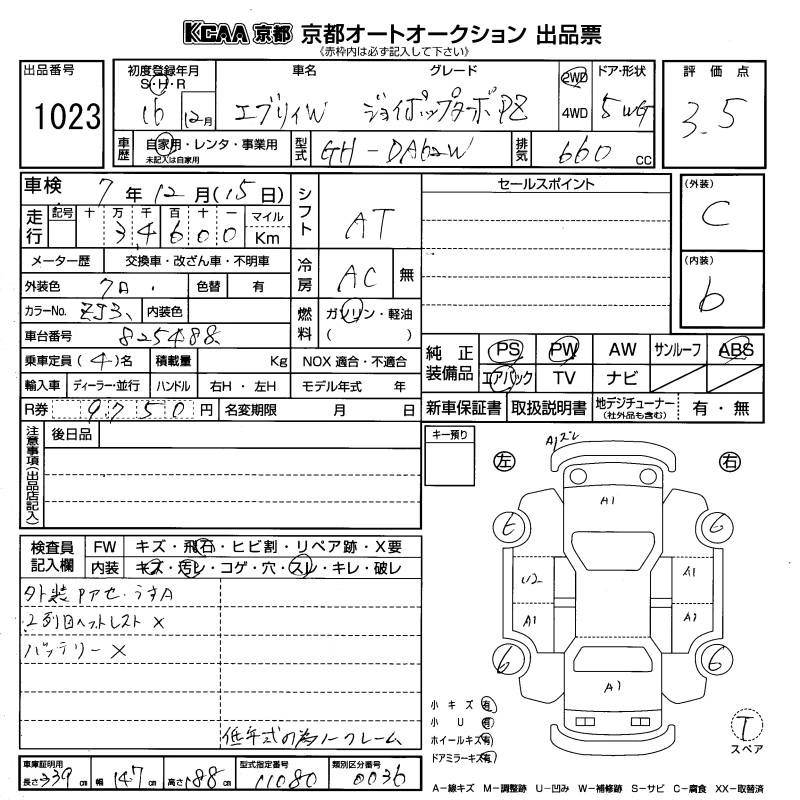 KCAA 京都 京都オートオークション 出品票
《赤枠内は必ず記入して下さい》
出品番号
1023
初度登録年月
S・H・R
16 12月
車名
エブリィW
グレード
ジョイポップターボPZ
2WD
4WD
ドア・形状
5 WG
評価点
3.5
車歴
自家用・レンタ・事業用
未記入は自家用
型式
GH-DA62W
排気
660 CC
車検 7年12月(15日)
シフト
AT
セールスポイント
(外装)
C
走行
記号 十 万 千 百 十 一 マイル
3 4 6 0 0 Km
メーター歴 交換車・改ざん車・不明車
冷房
AC
無
(内装)
b
外装色 色替 有
カラーNo. ZJ3 内装色
燃料
ガソリン・軽油
( )
車台番号 825488
乗車定員(4)名 積載量 Kg NOX 適合・不適合
純正装備品
PS PW AW サンルーフ ABS
エアバック TV ナビ
輸入車 ディーラー・並行 ハンドル 右H・左H モデル年式 年
R券 9750円 名変期限 月 日
新車保証書 取扱説明書 地デジチューナー (社外品も含む) 有・無
注意事項(出品店記入)
後日品
キー預り
A1ズレ
左
右
A1
t
6
U2
A1
A1
A1
6
6
A1
検査員記入欄
FW キズ・飛石・ヒビ割・リペア跡・X要
内装 キズ・汚レ・コゲ・穴・スレ・キレ・破レ
外装Pアセ・うすA
2列目ヘットレスト×
バッテリー×
低年式の為ノークレーム
小キズ 有
小U 有
ホイールキズ 有
ドアミラーキズ 有
T
スペア
車庫証明用
長さ 339cm 幅 147cm 高さ 188cm
型式指定番号 11080
類別区分番号 0036
A-線キズ M-調整跡 U-凹み W-補修跡 S-サビ C-腐食 XX-取替済